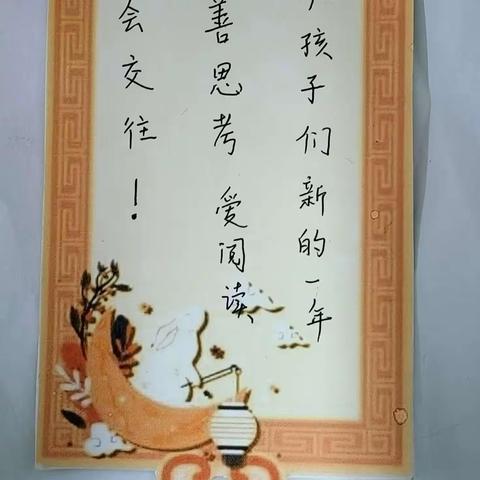 孩子们新的一年
善思考 爱阅读
会交往！